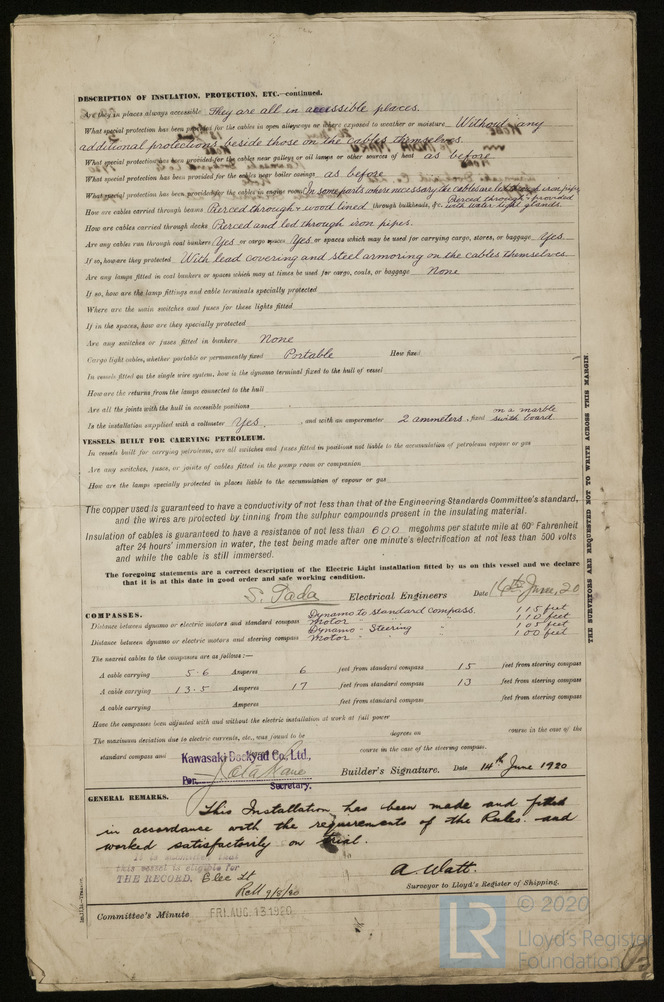 DESCRIPTION OF INSULATION, PROTECTION, ETC.—continued.
Are they in places always accessible They are all in accessible places.
What special protection has been provided for the cables in open alleyways or where exposed to weather or moisture Without any
additional protections beside those on the cables themselves.
What special protection has been provided for the cables near galley or oil lamps or other sources of heat as before
What special protection has been provided for the cables near boiler casings as before
What special protection has been provided for the cables in engine room In some parts where necessary the cables are led through iron pipes
How are cables carried through beams Pierced through & wood lined through bulkheads, &c. Pierced through & provided with water tight glands.
How are cables carried through decks Pierced and led through iron pipes.
Are any cables run through coal bunkers Yes or cargo spaces Yes or spaces which may be used for carrying cargo, stores, or baggage Yes
If so, how are they protected With lead covering and steel armoring on the cables themselves
Are any lamps fitted in coal bunkers or spaces which may at times be used for cargo, coals, or baggage None
If so, how are the lamp fittings and cable terminals specially protected
Where are the main switches and fuses for these lights fitted
If in the spaces, how are they specially protected
Are any switches or fuses fitted in bunkers None
Cargo light cables, whether portable or permanently fixed Portable How fixed
In vessels fitted on the single wire system, how is the dynamo terminal fixed to the hull of vessel
How are the returns from the lamps connected to the hull
Are all the joints with the hull in accessible positions
Is the installation supplied with a voltmeter Yes, , and with an amperemeter 2 ammeters, fixed on a marble swith board.
VESSELS BUILT FOR CARRYING PETROLEUM.
In vessels built for carrying petroleum, are all switches and fuses fitted in positions not liable to the accumulation of petroleum vapour or gas
Are any switches, fuses, or joints of cables fitted in the pump room or companion
How are the lamps specially protected in places liable to the accumulation of vapour or gas
The copper used is guaranteed to have a conductivity of not less than that of the Engineering Standards Committee's standard,
and the wires are protected by tinning from the sulphur compounds present in the insulating material.
Insulation of cables is guaranteed to have a resistance of not less than 600 megohms per statute mile at 60° Fahrenheit
after 24 hours' immersion in water, the test being made after one minute's electrification at not less than 500 volts
and while the cable is still immersed.
The foregoing statements are a correct description of the Electric Light installation fitted by us on this vessel and we declare
that it is at this date in good order and safe working condition.
S. Tada Electrical Engineers Date 14th June, 20
COMPASSES.
Distance between dynamo or electric motors and standard compass Dynamo to Standard Compass. 115 feet
Motor " " 110 feet
Distance between dynamo or electric motors and steering compass Dynamo - Steering " 105 feet
Motor " " 100 feet
The nearest cables to the compasses are as follows:—
A cable carrying 5.6 Amperes 6 feet from standard compass 15 feet from steering compass
A cable carrying 13.5 Amperes 17 feet from standard compass 13 feet from steering compass
A cable carrying Amperes feet from standard compass feet from steering compass
Have the compasses been adjusted with and without the electric installation at work at full power
The maximum deviation due to electric currents, etc., was found to be degrees on course in the case of the
standard compass and course in the case of the steering compass.
Kawasaki Dockyard Co. Ltd.,
Per.
Secretary.
Builder's Signature. Date 14th June 1920
GENERAL REMARKS.
This Installation has been made and fitted
in accordance with the requirements of the Rules. and
worked satisfactorily on trial.
It is submitted that
this vessel is eligible for
THE RECORD. Elec Lt
9/8/20
A. Watt.
Surveyor to Lloyd's Register of Shipping.
Committee's Minute FRI. AUG. 13 1920
THE SURVEYORS ARE REQUESTED NOT TO WRITE ACROSS THIS MARGIN.
LR
© 2020
Lloyd's Register
Foundation